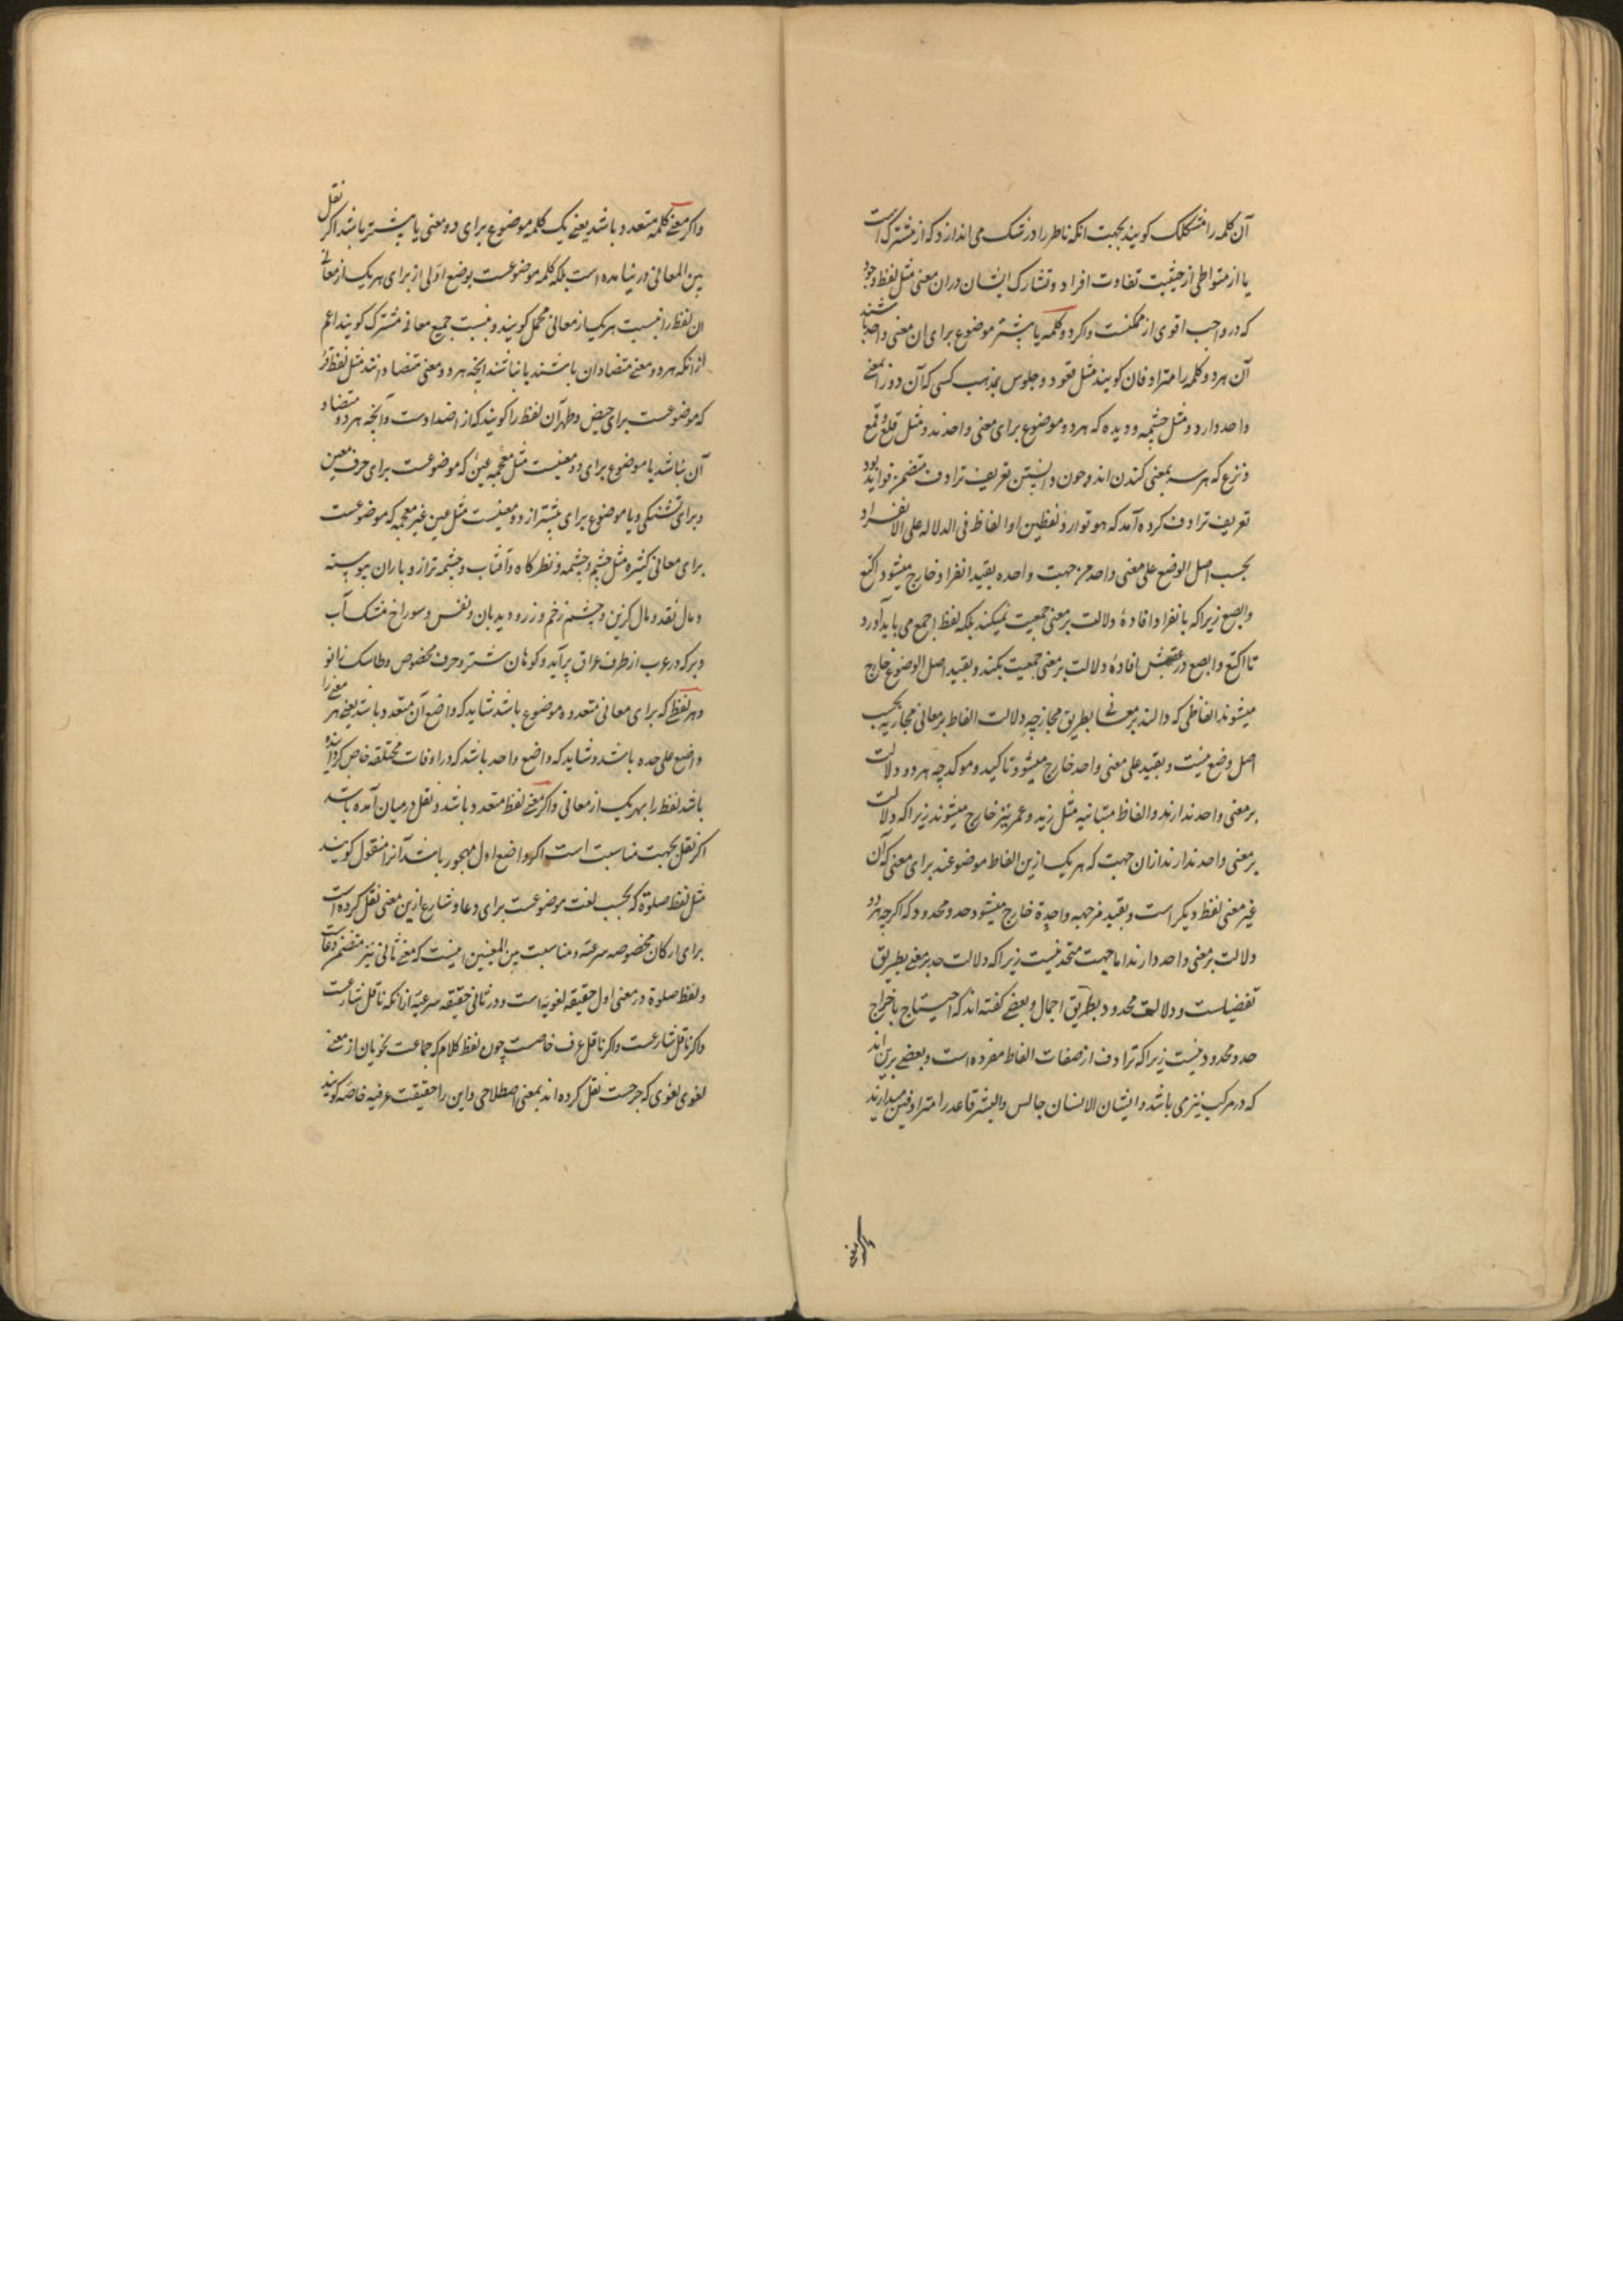 آن کلمه را مشکک کویند بجهت انکه ناظر را در شک می اندازد که از مشترک است
یا از متواطی از حیثیت تفاوت افراد و تشارک ایشان دران معنی مثل لفظ وجود
که در واجب اقوی از ممکنست واکر دو کلمه یا بیشتر موضوع برای ان معنی واحد باشند
آن هر دو کلمه را مترادفان کویند مثل قعود و جلوس بمذهب کسی که آن دو را بمعنی
واحد دارد و مثل چشمه و دیده که هر دو موضوع برای معنی واحدند و مثل قلع و قمع
و نزع که هر سه بمعنی کندن اند و چون دانستن تعریف ترادف متضمن فواید بود
تعریف ترادف کرده آمد که هو توارد لفظین او الفاظ فی الدلاله علی الانفراد
بحسب اصل الوضع علی معنی واحد من جهت واحده بقید انفراد خارج میشود اکتع
وابصع زیرا که بانفراد افادهٔ دلالت بر معنی جمعیت نمیکند بلکه لفظ اجمع می باید آورد
تا اکتع و ابصع در عقبش افادهٔ دلالت بر معنی جمعیت بکند و بقید اصل الوضع خارج
میشوند الفاظی که دالند بر معانی بطریق مجاز چه دلالت الفاظ بر معانی مجازیه بحسب
اصل وضع نیست و بقید علی معنی واحد خارج میشود تاکید و موکد چه هر دو دلالت
بر معنی واحد ندارند و الفاظ متباینه مثل زید و عمر نیز خارج میشوند زیرا که دلالت
بر معنی واحد ندارند ازان جهت که هر یک ازین الفاظ موضوعند برای معنی که آن
غیر معنی لفظ دیکر است و بقید من جهه واحدة خارج میشود حد و محدود که اکرچه هر دو
دلالت بر معنی واحد دارند اما جهت متحد نیست زیرا که دلالت حد بر معنی بطریق
تفضیلست و دلالت محدود بطریق اجمال و بعضی کفته اند که احتیاج باخراج
حد و محدود نیست زیرا که ترادف از صفات الفاظ مفرده است و بعضی برین اند
که در مرکب نیز می باشد و ایشان الانسان جالس والبشر قاعد را مترادفین میدارند
واکر معنی
واکر معنی کلمه متعدد باشد یعنی یک کلمه موضوع برای دو معنی یا بیشتر باشد اکر نقل
بین المعانی در نیامده است بلکه کلمه موضوعست بوضع اولی از برای هر یک از معانی
ان لفظ را نسبت بهر یک از معانی مجمل کویند و نسبت بجمیع معانی مشترک کویند اعم
ازانکه هر دو معنی متضادان باشند یا نباشند انچه هر دو معنی متضاد دانند مثل لفظ قرء
که موضوعست برای حیض و طهر آن لفظ را کویند که از اضدادست و آنچه هر دو متضاد
آن نباشد یا موضوع برای دو معنیست مثل معجمه غین که موضوعست برای حرف معین
و برای تشنکی و یا موضوع برای بیشتر از دو معنیست مثل عین غیر معجمه که موضوعست
برای معانی کثیره مثل چشم و چشمه و نظرکاه و آفتاب و چشمه ترازو و باران پیوسته
و مال نقد و مال کزین و چشم زخم و زر و دیدبان و نفس و سوراخ مشک آب
و بر که در عرب از طرف عراق بر آید و کوهان شتر و حرف مخصوص و طاسک زانو
و هر لفظی که برای معانی متعدده موضوع باشد شاید که واضع آن متعدد باشد یعنی هر معنی را
واضع علی حده باشد و شاید که واضع واحد باشد که در اوقات مختلفه خاص کردانیده
باشد لفظ را بهر یک از معانی واکر معنی لفظ متعدد باشد و نقل درمیان آمده باشد
اکر نقل بجهت مناسبت است اکر واضع اول مهجور باشد آنرا منقول کویند
مثل لفظ صلوة که بحسب لغت موضوعست برای دعا و شارع ازین معنی نقل کرده است
برای ارکان مخصوصه شرعیه و مناسبت بین المعنیین اینست که معنی ثانی نیز متضمن دعاست
و لفظ صلوة در معنی اول حقیقه لغویه است و در ثانی حقیقه شرعیه ازانکه ناقل شارعست
واکر ناقل شارعست واکر ناقل عرف خاصست چون لفظ کلام که جماعت نحویان از معنی
لغوی لغوی که جرحست نقل کرده اند بمعنی اصطلاحی و این را حقیقت عرفیه خاصه کویند